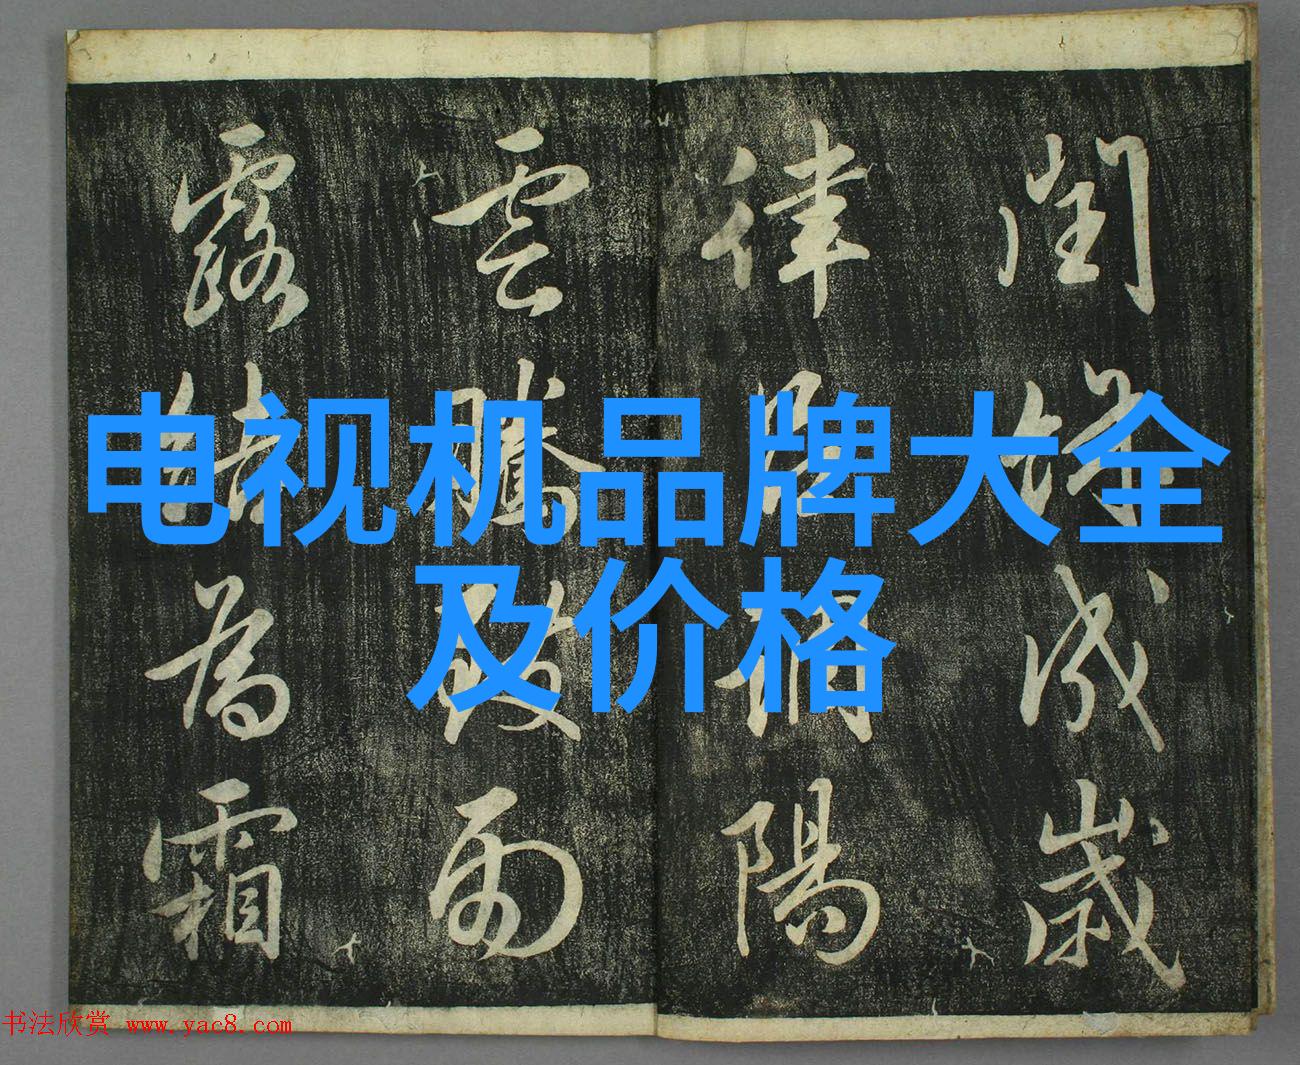 电视机品牌大全
及价格
閏餘成歲
律呂調陽
雲騰致雨
露結為霜
书法欣赏 www.yac8.com